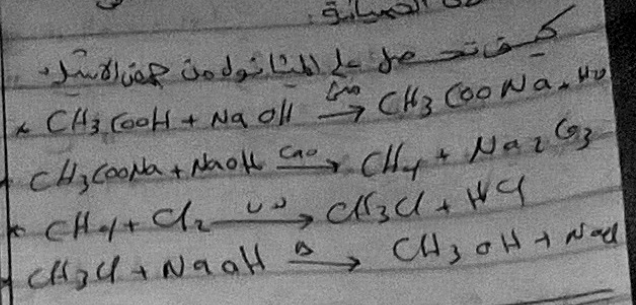 كيف تحصل على الميثانول من حمض الأستيك.
* CH3COOH + NaOH → CH3COONa + H2O
CH3COONa + NaOH CaO → CH4 + Na2CO3
* CH4 + Cl2 UV → CH3Cl + HCl
CH3Cl + NaOH Δ → CH3OH + NaCl